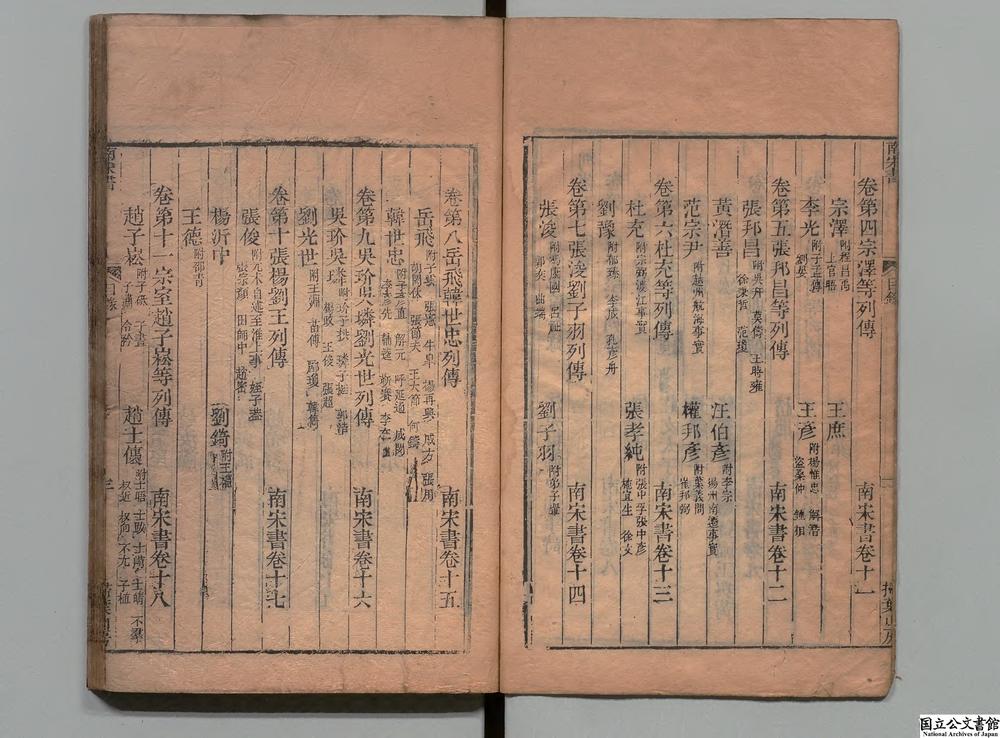 南宋書
卷第四宗澤等列傳 南宋書卷十一
宗澤 附程昌㝢 上官悟 王庶
李光 附子孟傳 王彥 附楊惟忠 解潛
盜桑仲
卷第五張邦昌等列傳 南宋書卷十二
張邦昌 附吳幵 莫儔 王時雍
徐秉哲 范瓊
黃潛善 汪伯彥 附李宗
揚州南遷事實
范宗尹 附越州航海事實 權邦彥 附葉義問
崔邦弼
卷第六杜充等列傳 南宋書卷十三
杜充 附宗弼渡江事實 張孝純 附張中孚張中彥
施宜生 徐文
劉豫 附酈瓊 李成 孔彥舟
卷第七張浚劉子羽列傳 南宋書卷十四
張浚 附馮康國 呂祉
曲端
劉子羽 附弟子翬
目錄
南宋書
卷第八岳飛韓世忠列傳 南宋書卷十五
岳飛 附子雲 張憲 牛皋 楊再興 戚方 張用
張節夫 王大節 何鑄
韓世忠 附子彥直 解元 呼延通 成閔
卷第九吳玠吳璘劉光世列傳 南宋書卷十六
吳玠吳璘 附玠子拱 璘子挺 郭浩
劉光世 附王淵 苗傅 酈瓊 韓儔
王俊 張超
卷第十張楊劉王列傳 南宋書卷十七
張俊 附兀朮自述至淮上事 姪子蓋
張宗顏 田師中 趙密
楊沂中 劉錡 附王福
王德 附酈青
卷第十一宗室趙子崧等列傳 南宋書卷十八
趙子崧 附子砥 子晝
子潚 令衿
趙士㒟 附士㬇 士㒟 士晴 不羣
叔近 叔向 不尤 子植
國立公文書館
National Archives of Japan